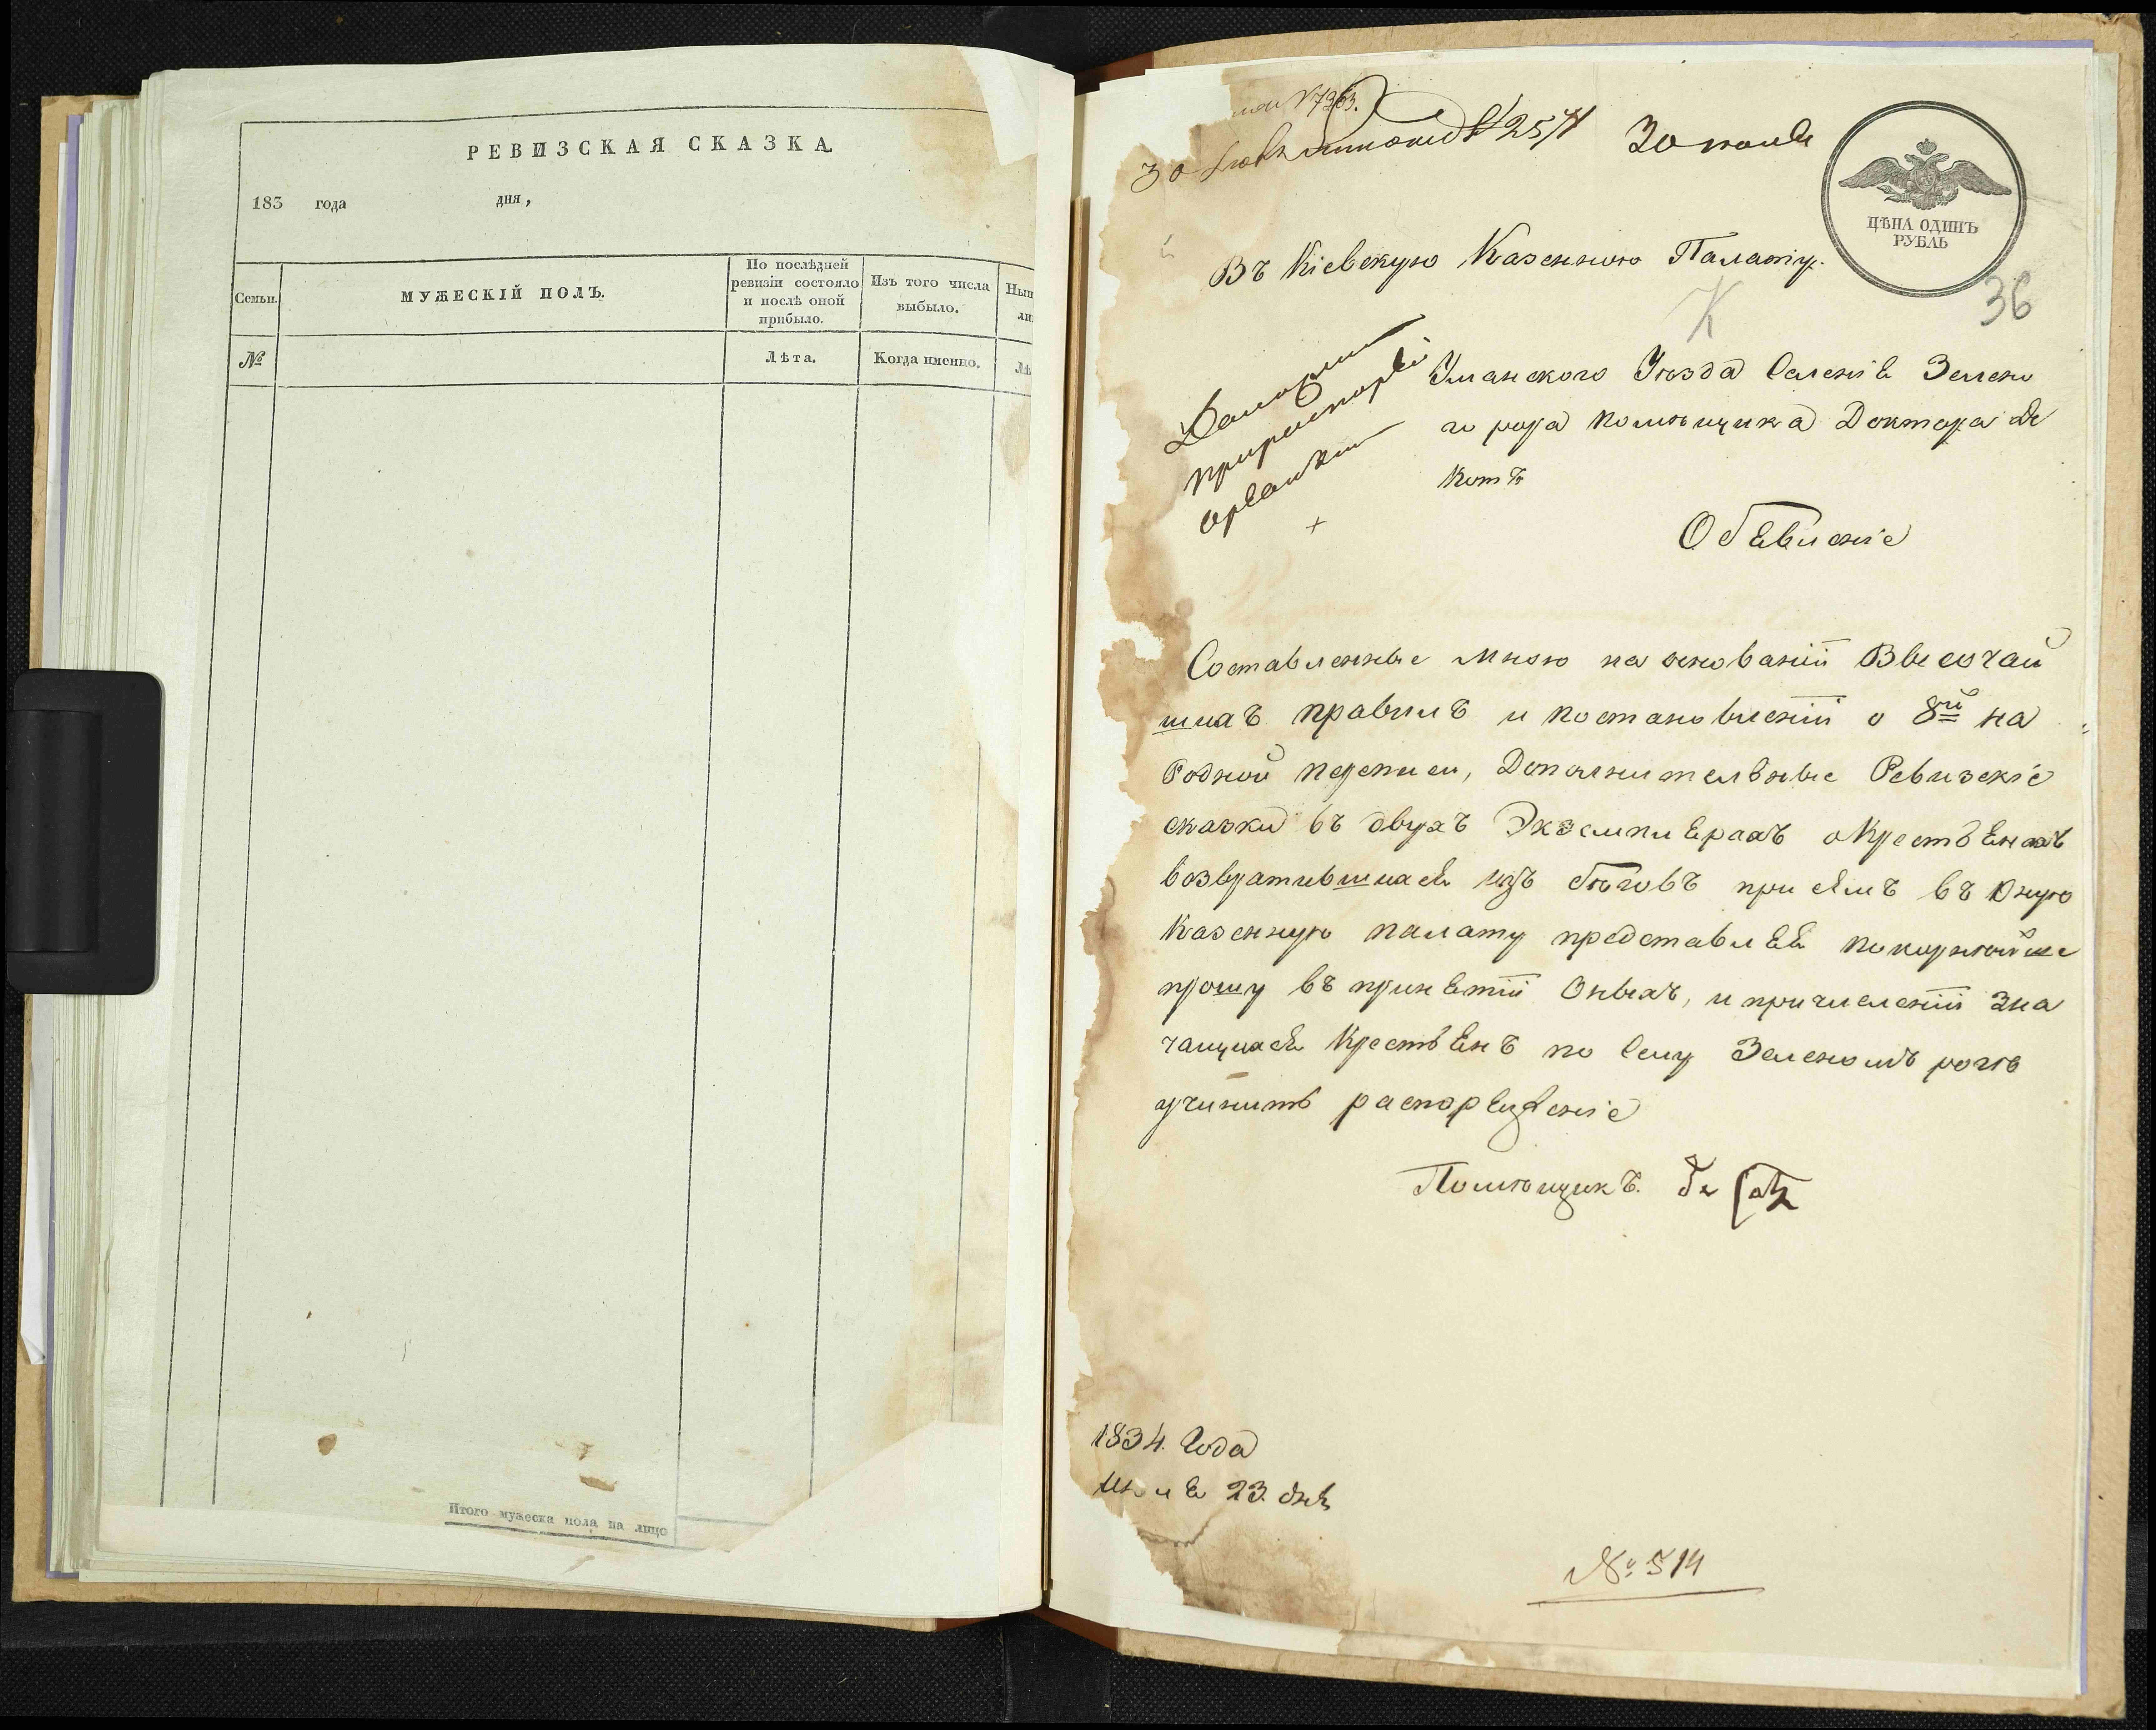 РЕВИЗСКАЯ СКАЗКА
183 года дня,
Семьи.
МУЖЕСКІЙ ПОЛЪ.
По послѣдней
ревизіи состояло
и послѣ оной
прибыло.
Изъ того числа
выбыло.
№
Лѣта.
Когда именно.
Итого мужеска пола на лицо
№ 7263.
30 № 2574 30 июля
ЦѢНА ОДИНЪ
РУБЛЬ
Въ Кіевскую Казенною Палату.
36
Уманского Уѣзда Селенія Зелено
го рога помѣщика Доктора де
Котъ
Обявленіе
Составленные мною на основаніи Высочай
шихъ правилъ и постановленіи о 8й на
Родной переписи, Дополнительные Ревизскіе
сказки въ двухъ Экземплярахъ о Крестьянахъ
возвратившихся изъ бѣговъ при семъ въ Оную
Казенную палату представляя покорнѣйше
прошу въ принятіи Оныхъ, и причисленіи Зна
чащихся Крестьянъ по Селу Зеленомъ рогѣ
учинить распоряженіе
Помѣщикъ. де
1834. Года
Июля 23. дня
№ 514